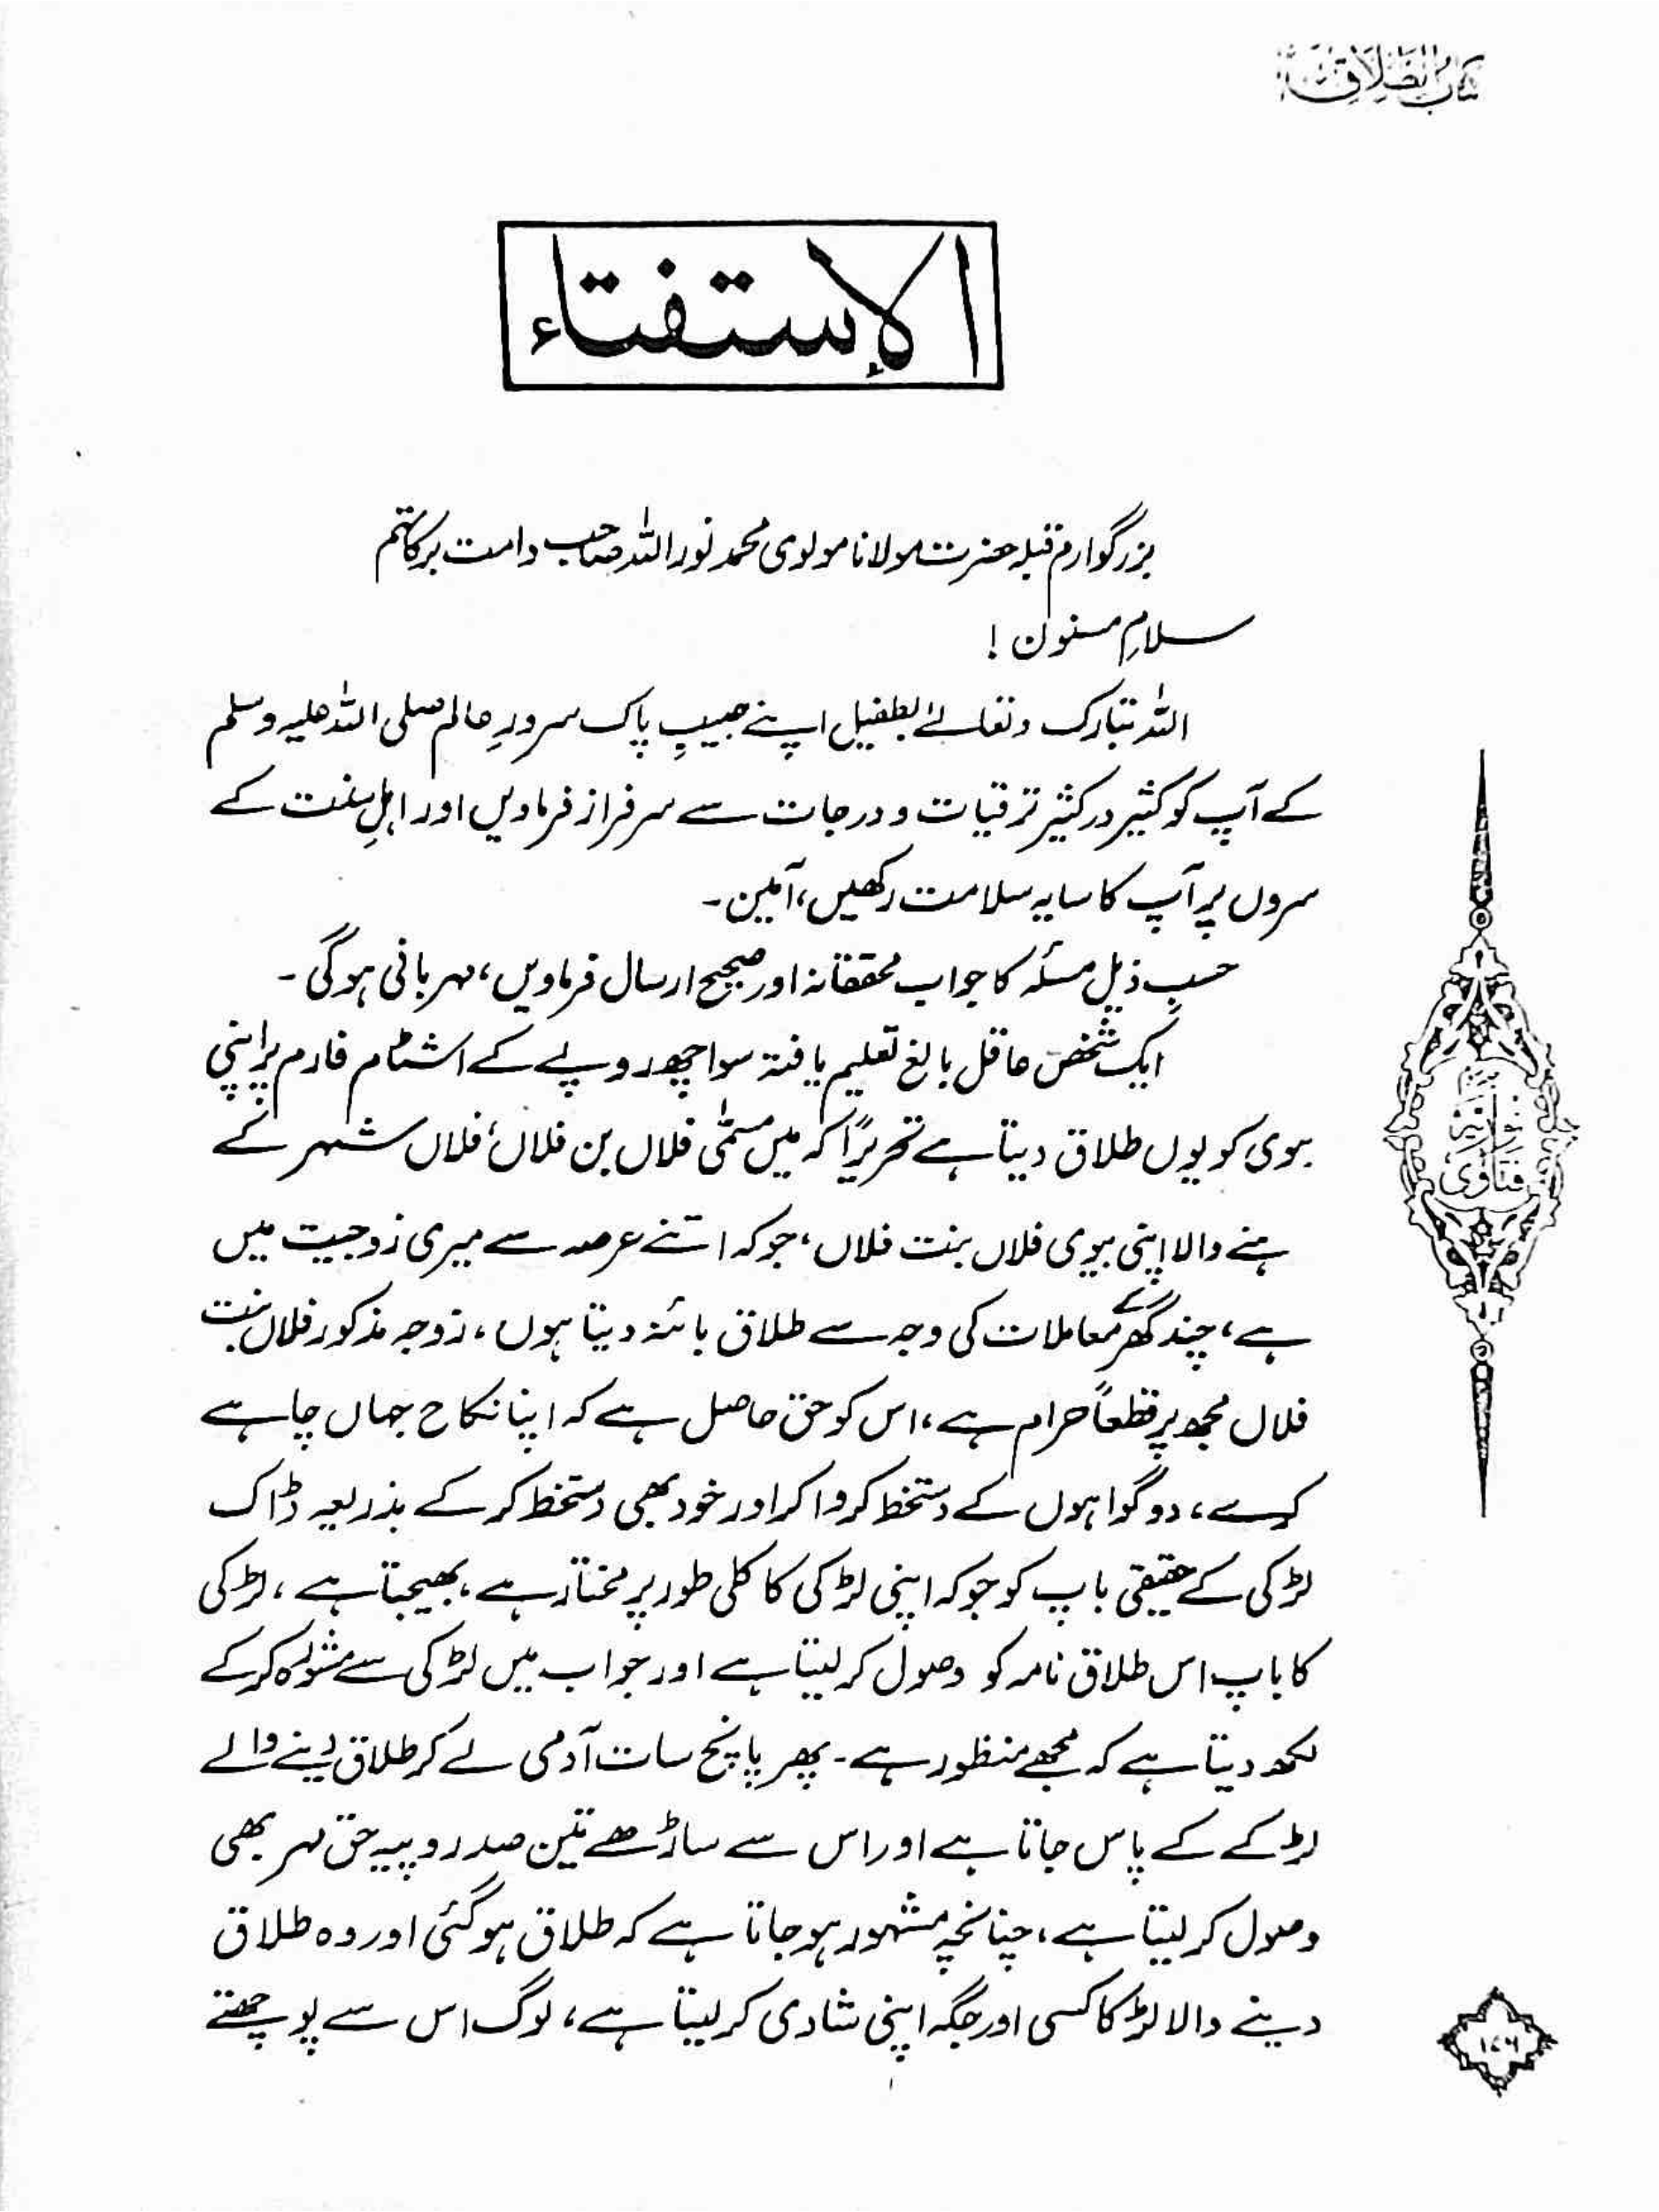 کتاب الطلاق
الإستفتاء
بزرگوارم قبلہ حضرت مولانا مولوی محمد نور اللہ صاحب دامت برکاتہم
سلامِ مسنون !
اللہ تبارک وتعالےٰ بطفیل اپنے حبیبِ پاک سرورِ عالم صلی اللہ علیہ وسلم
کے آپ کو کثیر در کثیر ترقیات و درجات سے سرفراز فرماویں اور اہلِ سنت کے
سروں پر آپ کا سایہ سلامت رکھیں، آمین۔
حسبِ ذیل مسئلہ کا جواب محققانہ اور صحیح ارسال فرماویں، مہربانی ہوگی۔
ایک شخص عاقل بالغ تعلیم یافتہ سوا چھ روپے کے اشٹام فارم پر اپنی
بیوی کو یوں طلاق دیتا ہے تحریراً کہ میں مسمّٰی فلاں بن فلاں، فلاں شہر کے
رہنے والا اپنی بیوی فلاں بنت فلاں، جو کہ اتنے عرصہ سے میری زوجیت میں
ہے، چند گھر کے معاملات کی وجہ سے طلاق بائنہ دیتا ہوں، زوجہ مذکور فلاں بنت
فلاں مجھ پر قطعاً حرام ہے، اس کو حق حاصل ہے کہ اپنا نکاح جہاں چاہے
کرے، دو گواہوں کے دستخط کروا کر اور خود بھی دستخط کر کے بذریعہ ڈاک
لڑکی کے حقیقی باپ کو جو کہ اپنی لڑکی کا کلی طور پر مختار ہے، بھیجتا ہے، لڑکی
کا باپ اس طلاق نامہ کو وصول کر لیتا ہے اور جواب میں لڑکی سے مشورہ کر کے
لکھ دیتا ہے کہ مجھے منظور ہے۔ پھر پانچ سات آدمی لے کر طلاق دینے والے
لڑکے کے پاس جاتا ہے اور اس سے ساڑھے تین صد روپیہ حق مہر بھی
وصول کر لیتا ہے، چنانچہ مشہور ہو جاتا ہے کہ طلاق ہو گئی اور وہ طلاق
دینے والا لڑکا کسی اور جگہ اپنی شادی کر لیتا ہے، لوگ اس سے پوچھتے
فتاویٰ نوریہ
۱۷۶